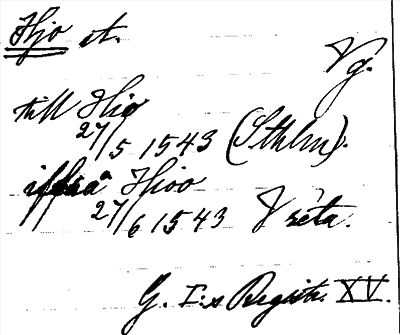 Hjo st.
Vg.
till Hio
27/5 1543 (Sthlm).
iffraa Hioo
27/6 1543 Vreta.
G. I:s Registr. XV.